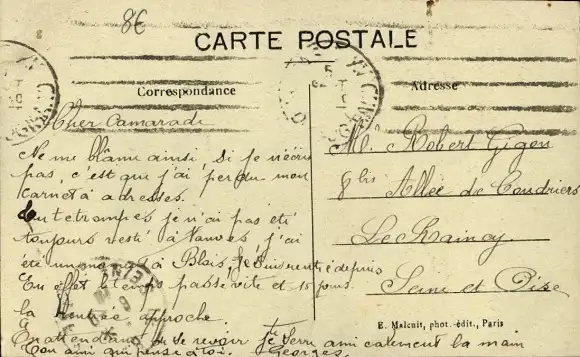 8€
CARTE POSTALE
Correspondance
Adresse
Cher Camarade
Ne me blâme ainsi, si je n'écris
pas, c'est que j'ai perdu mon
carnet à adresses.
Tu te trompes je n'ai pas été
toujours resté à Vanves, j'ai
été un mois à Blois, je suis rentré depuis
En effet le temps passe vite et 15 jours
la rentrée approche.
En attendant de se revoir je te serre amicalement la main
Ton ami qui pense à toi. Georges
M. Robert Gigon
8 bis Allée de Coudriers
Le Raincy
Seine et Oise
E. Malcuit, phot.-édit., Paris